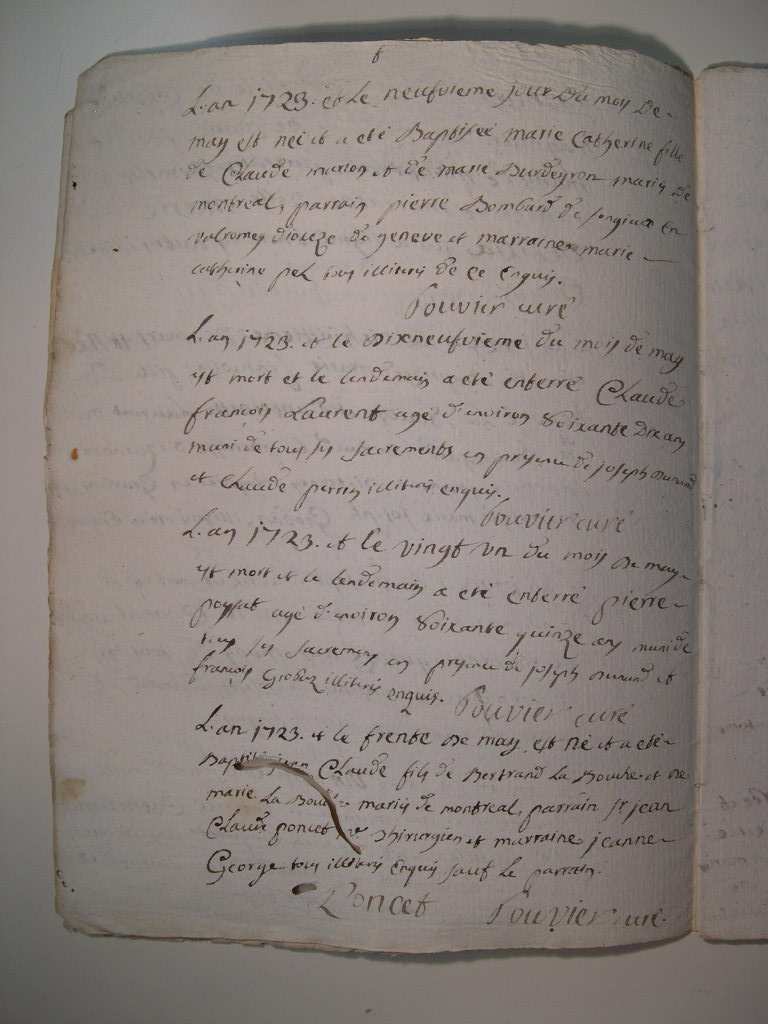 6
L'an 1723. et le neufvieme jour du moy de
may est néé et a eté Baptiséé marie Catherine fille
de Claude marion et de marie Burdeyron mariés de
montreal, parrain pierre Bombard de songieux En
valromey dioceze de geneve et marraine marie
catherine pel tous illiteris de ce Enquis.
Pouvier curé
L'an 1723. et le Dixneufvieme du mois de may
est mort et le lendemain a eté enterré Claude
françois Laurent agé d'environ Soixante Dix ans
muni de tous ses sacrements en presence de joseph Durand
et Claude perrin illiteris enquis.
Pouvier curé
L'an 1723. et le vingt un du mois de may
est mort et le lendemain a eté enterré pierre
poysat agé d'environ Soixante quinze ans muni de
tous ses sacremens en presence de joseph durand et
françois Grosbuz illiteris enquis.
Pouvier curé
L'an 1723. et le trente de may est né et a eté
Baptisé jean Claude fils de Bertrand La Bouche et de
marie La mariés de montreal, parrain sr jean
Claude poncet chirurgien et marraine jeanne
George tous illiteris Enquis sauf le parrain.
Poncet Pouvier curé.